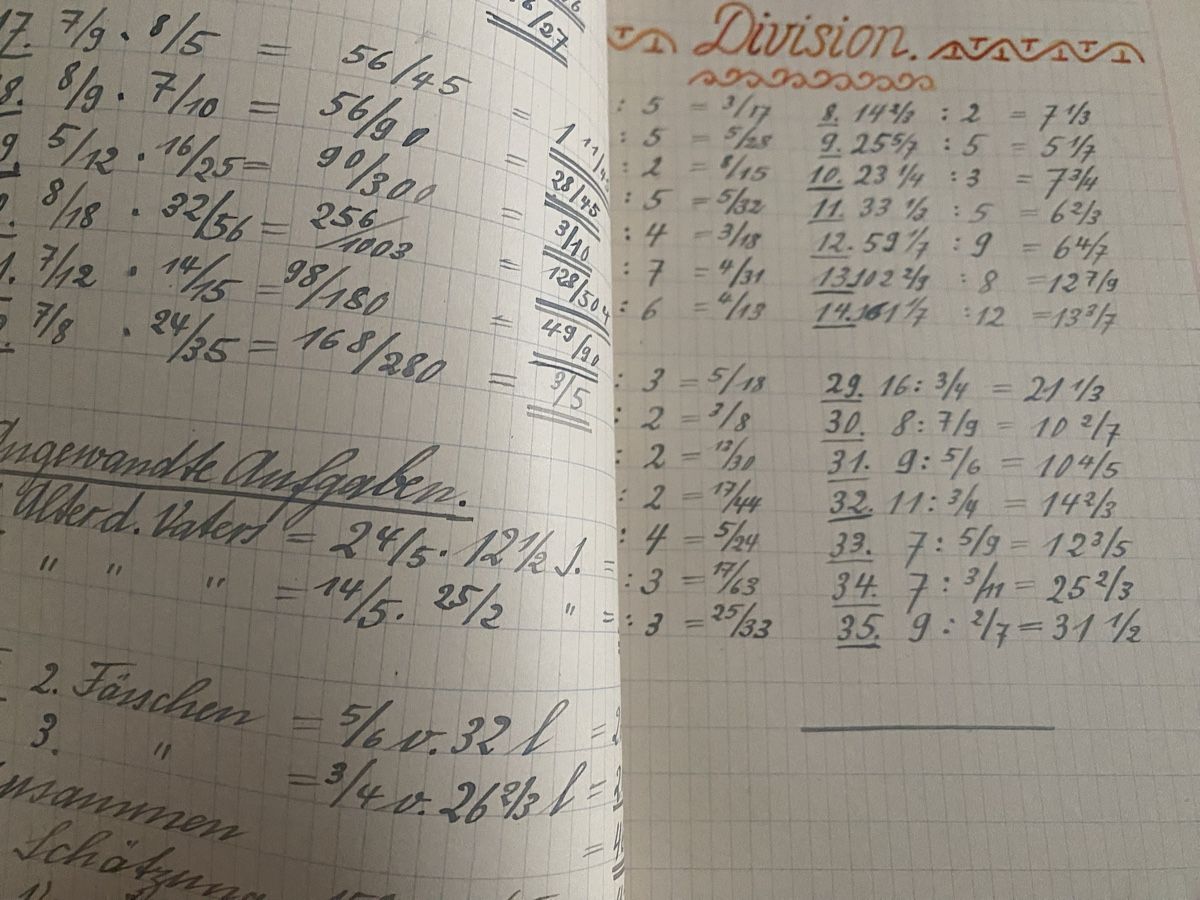 6/27
17. 7/9 · 8/5 = 56/45 = 1 11/45
8. 8/9 · 7/10 = 56/90 = 28/45
9. 5/12 · 16/25 = 90/300 = 3/10
8/18 · 32/56 = 256/1003 = 128/504
1. 7/12 · 14/15 = 98/180 = 49/90
7/8 · 24/35 = 168/280 = 3/5
Angewandte Aufgaben.
Alter d. Vaters = 2 4/5 · 12 1/2 J. =
" " " = 14/5 · 25/2 " =
2. Fässchen = 5/6 v. 32 l = 2
3. " = 3/4 v. 26 2/3 l =
Zusammen =
Schätzung
Division.
: 5 = 3/17 8. 14 2/3 : 2 = 7 1/3
: 5 = 5/28 9. 25 5/7 : 5 = 5 1/7
: 2 = 8/15 10. 23 1/4 : 3 = 7 3/4
: 5 = 5/32 11. 33 1/3 : 5 = 6 2/3
: 4 = 3/18 12. 59 1/7 : 9 = 6 4/7
: 7 = 4/31 13. 102 2/9 : 8 = 12 7/9
: 6 = 4/13 14. 161 1/7 : 12 = 13 3/7
: 3 = 5/18 29. 16 : 3/4 = 21 1/3
: 2 = 3/8 30. 8 : 7/9 = 10 2/7
: 2 = 13/30 31. 9 : 5/6 = 10 4/5
: 2 = 17/44 32. 11 : 3/4 = 14 2/3
: 4 = 5/24 33. 7 : 5/9 = 12 3/5
: 3 = 17/63 34. 7 : 3/11 = 25 2/3
: 3 = 25/33 35. 9 : 2/7 = 31 1/2